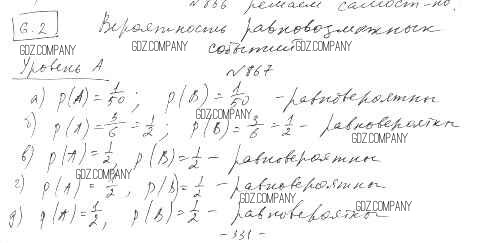 №866 решаем самост-но.
6.2 Вероятность равновозможных
GDZ.COMPANY GDZ.COMPANY GDZ.COMPANY
событий
Уровень А. №867
а) p(A)=1/50; p(B)=1/50 - равновероятны
GDZ.COMPANY
б) p(A)=3/6=1/2; p(B)=3/6=1/2 - равновероятны
в) p(A)=1/2, p(B)=1/2 - равновероятны
GDZ.COMPANY GDZ.COMPANY
г) p(A)=1/2, p(B)=1/2 - равновероятны
GDZ.COMPANY GDZ.COMPANY
д) p(A)=1/2, p(B)=1/2 - равновероятны
GDZ.COMPANY
-331-